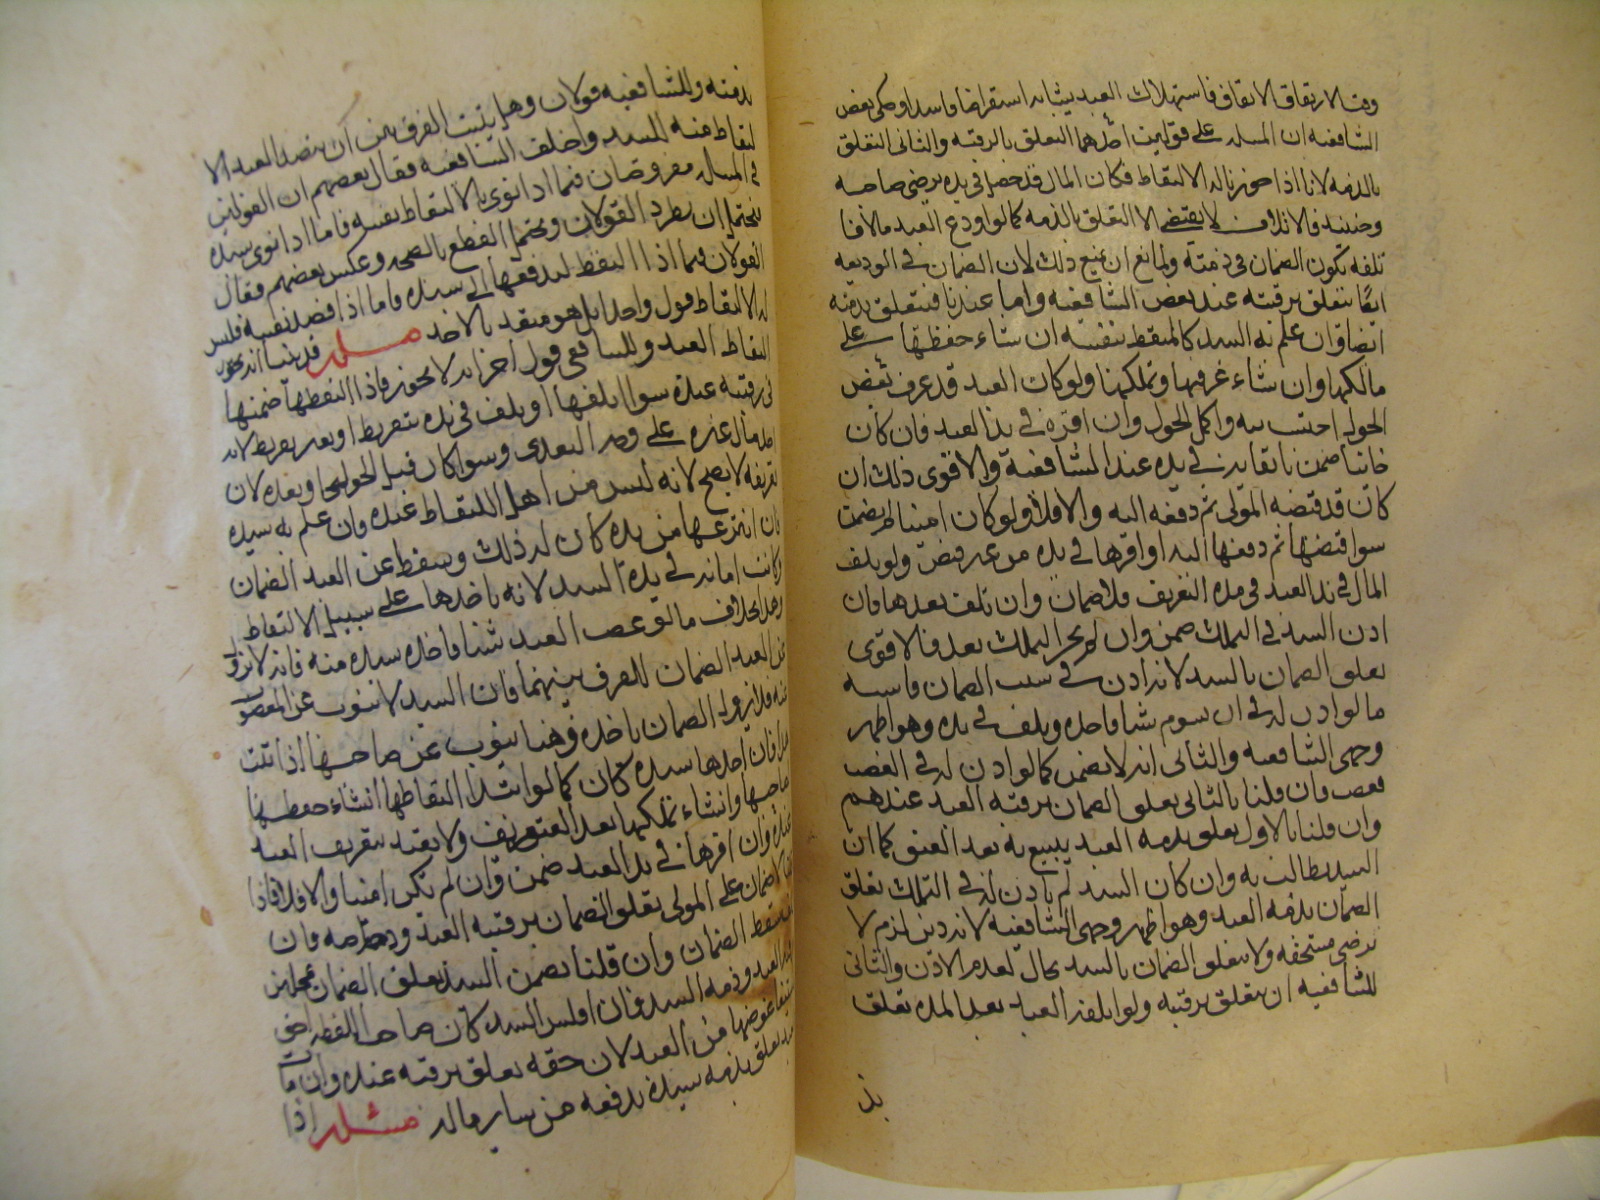 وقد الارتفاق الاتفاق فاستهلاك العبد يشابه استقراضا فاسدا وحكى بعض
الشافعية ان المسله على قولين احدهما التعلق بالرقبه والثانى التعلق
بالذمه لانا اذا جوزنا له الالتقاط فكان المال قد حصل فى يده برضى صاحبه
وحينئذ فالاتلاف لا يقتضى الا التعلق بالذمه كما لو اودع العبد مالا فا
تلفه تكون الضمان فى ذمته ولمانع ان يمنع ذلك لان الضمان فى الوديعه
ايضا يتعلق برقبته عند بعض الشافعيه واما عندنا فيتعلق بذمته
ايضا وان علم به السيد كالملتقط بنفسه ان شاء حفظها على
مالكها وان شاء عرفها وتملكها ولو كان العبد قد عرف بعض
الحول احتسب به واكمل الحول وان اقره فى يد العبد فان كان
خائنا ضمن بابقائه فى يده عند الشافعية والاقوى ذلك ان
كان قد قبضه المولى ثم دفعه اليه والا فلا ولو كان امينا لم يضمن
سوا قبضها ثم دفعها اليه او اقرها فى يده من غير قبض ولو تلف
المال فى يد العبد فى مده التعريف فلا ضمان وان تلف بعدها فان
اذن السيد فى التملك ضمن وان لم يجر التملك بعد فالاقوى
تعلق الضمان بالسيد لانه اذن فى سبب الضمان فاشبه
ما لو اذن له فى ان يسوم شيا فاخذه وتلف فى يده وهو اظهر
وجهى الشافعيه والثانى انه لا يضمن كما لو اذن له فى الغصب
فغصب فان قلنا بالثانى تعلق الضمان برقبه العبد عندهم
وان قلنا بالاول تعلق بذمه العبد يتبع به بعد العتق كما ان
السيد يطالب به وان كان السيد لم ياذن له فى التملك تعلق
الضمان بذمه العبد وهو اظهر وجهى الشافعيه لانه دين لزم لا
برضى مستحقه ولا يتعلق الضمان بالسيد بحال لعدم الاذن والثانى
للشافعيه ان يتعلق برقبته ولو اتلفه العبد بعد المده تعلق
بذ
بذمته وللشافعيه قولان وهل يثبت الفرق بين ان يقصد العبد الا
لتقاط منه للسيد واختلف الشافعيه فقال بعضهم ان القولين
فى المسله مفروضان فيما اذا نوى بالالتقاط نفسه فاما اذا نوى سيده
فيحتمل ان يطرد القولان ويحتمل القطع بالصحه وعكس بعضهم فقال
القولان فيما اذا التقط ليدفعها الى سيده فاما اذا قصد نفسه فليس
له الالتقاط قول واحدا بل هو متعد بالاخذ مسله قد بينا انه يجوز
التقاط العبد وللشافعى قول اخر انه لا يجوز فاذا التقطها ضمنها
فى رقبته عنده سوا اتلفها او تلف فى يده بتفريط او بغير تفريط لانه
اخذ مال غيره على وجه التعدى وسوا كان قبل الحول او بعده لان
تعريفه لا يصح لانه ليس من اهل الالتقاط عنده وان علم به سيده
فان انتزعها من يده كان له ذلك وسقط عن العبد الضمان
وكانت امانه فى يد السيد لانه ياخذها على سبيل الالتقاط
وهذا بخلاف ما لو غصب العبد شيا فاخذه سيده منه فانه لا يزول
عن العبد الضمان للفرق بينهما فان السيد لا ينوب عن المغصوب
منه فلا يزول الضمان باخذه وهنا ينوب عن صاحبها اذا ثبت
هذا فان اخذها سيده كان كما لو ابتدا التقاطها ان شاء حفظها
لصاحبها وان شاء تملكها بعد التعريف ولا يعتد بتعريف العبد
عنده وان اقرها فى يد العبد ضمن وان لم يكن امينا والا فلا فاذا
قلنا لا ضمان على المولى تعلق الضمان برقبه العبد ودمه فان
سقط الضمان وان قلنا يضمن السيد تعلق الضمان بمحلين
رقبه العبد وذمه السيد فان افلس السيد كان صاحب اللقطه احق
باستيفا عوضها من العبد لان حقه تعلق برقبته عنده وان مات
العبد تعلق بذمه سيده يدفعه من ساير ماله مسله اذا